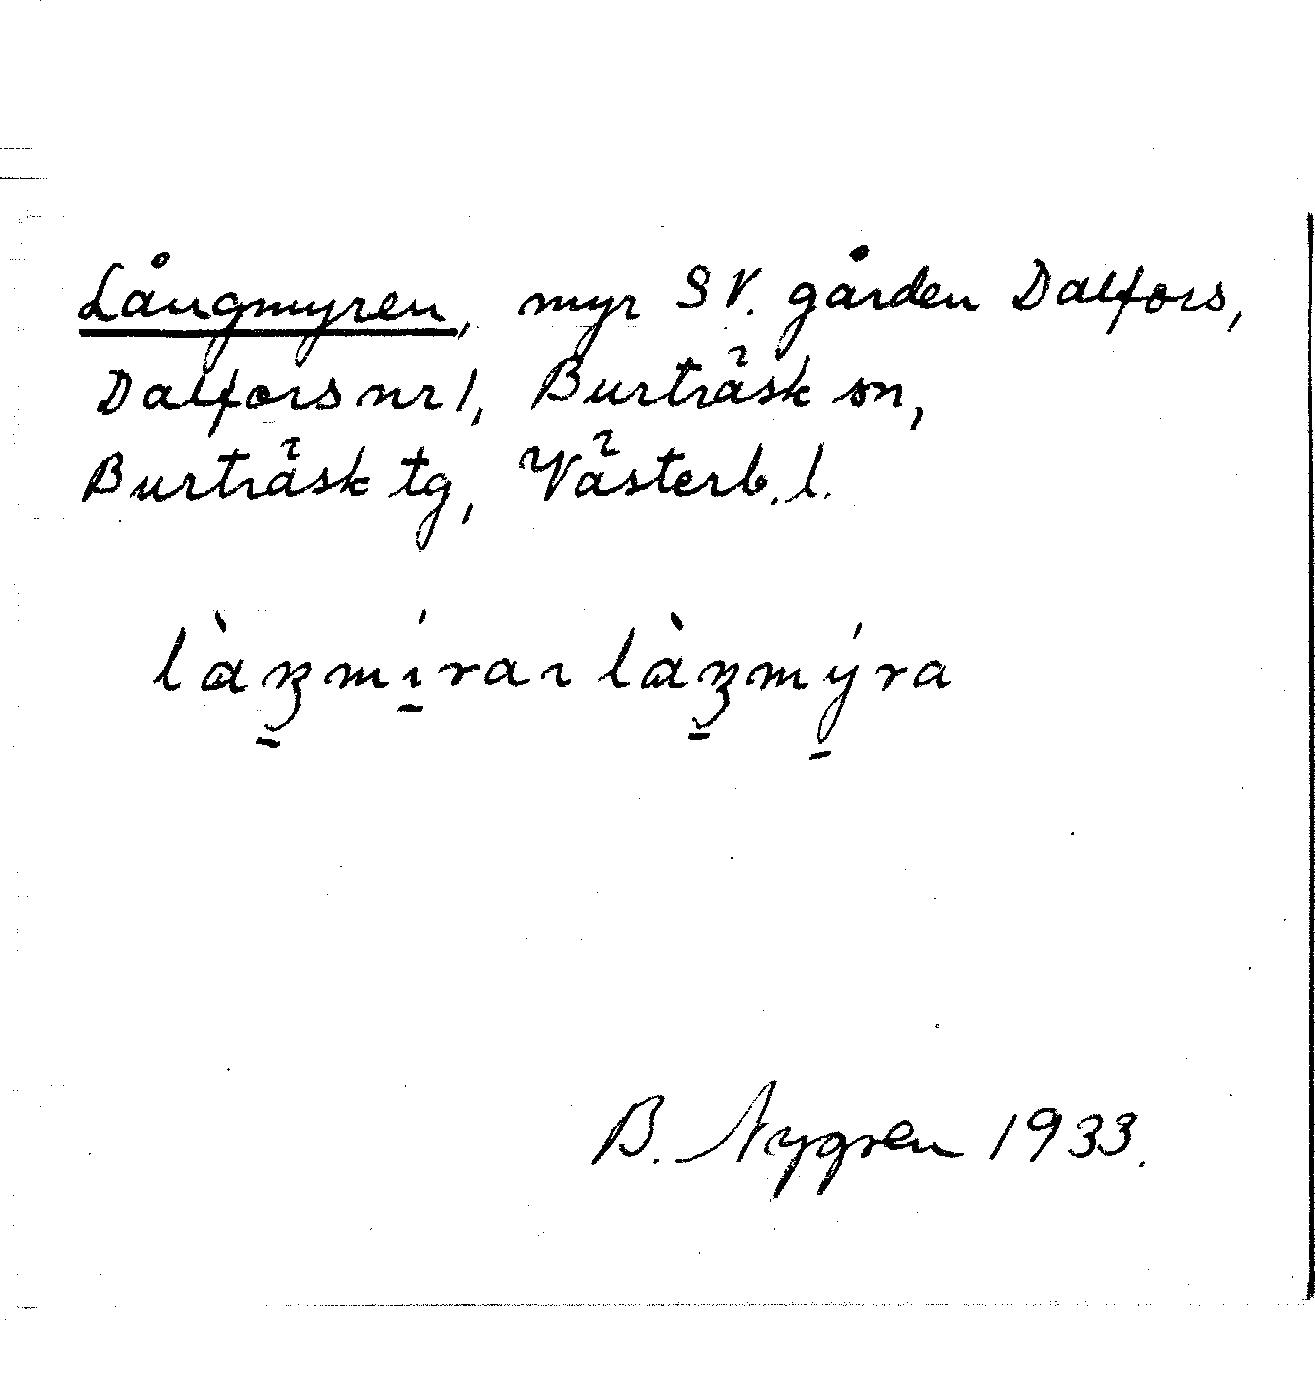 Långmyren, myr SV. gården Dalfors,
Dalfors nr 1, Burträsk sn,
Burträsk tg, Västerb. l.
B. Nygren 1933.